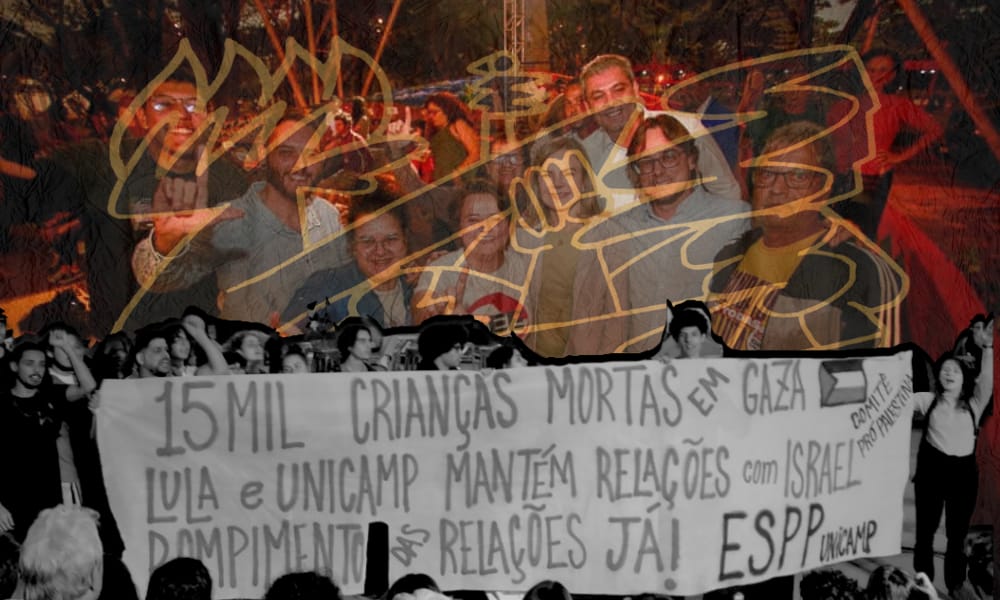 15 MIL CRIANÇAS MORTAS EM GAZA
COMITÊ PRÓ PALESTINA
LULA e UNICAMP MANTÉM RELAÇÕES com ISRAEL
ROMPIMENTO DAS RELAÇÕES JÁ! ESPP UNICAMP